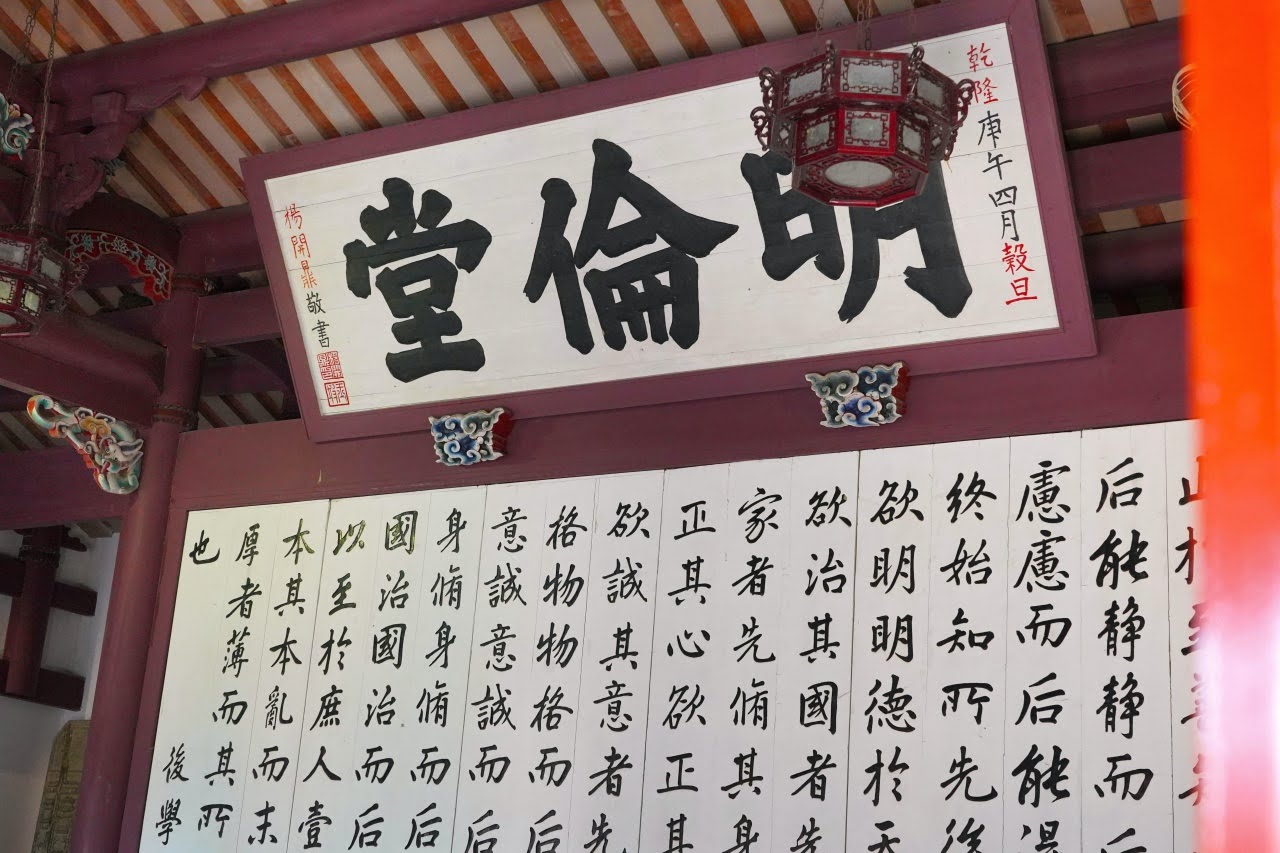 乾隆庚午四月穀旦
明倫堂
楊開鼎敬書
后能静静而后
慮慮而后能得
終始知所先後
欲明明德於天
欲治其國者先
家者先脩其身
正其心欲正其
欲誠其意者先
格物物格而后
意誠意誠而后
身脩身脩而后
國治國治而后
以至於庶人壹
本其本亂而末
厚者薄而其所
也 後學